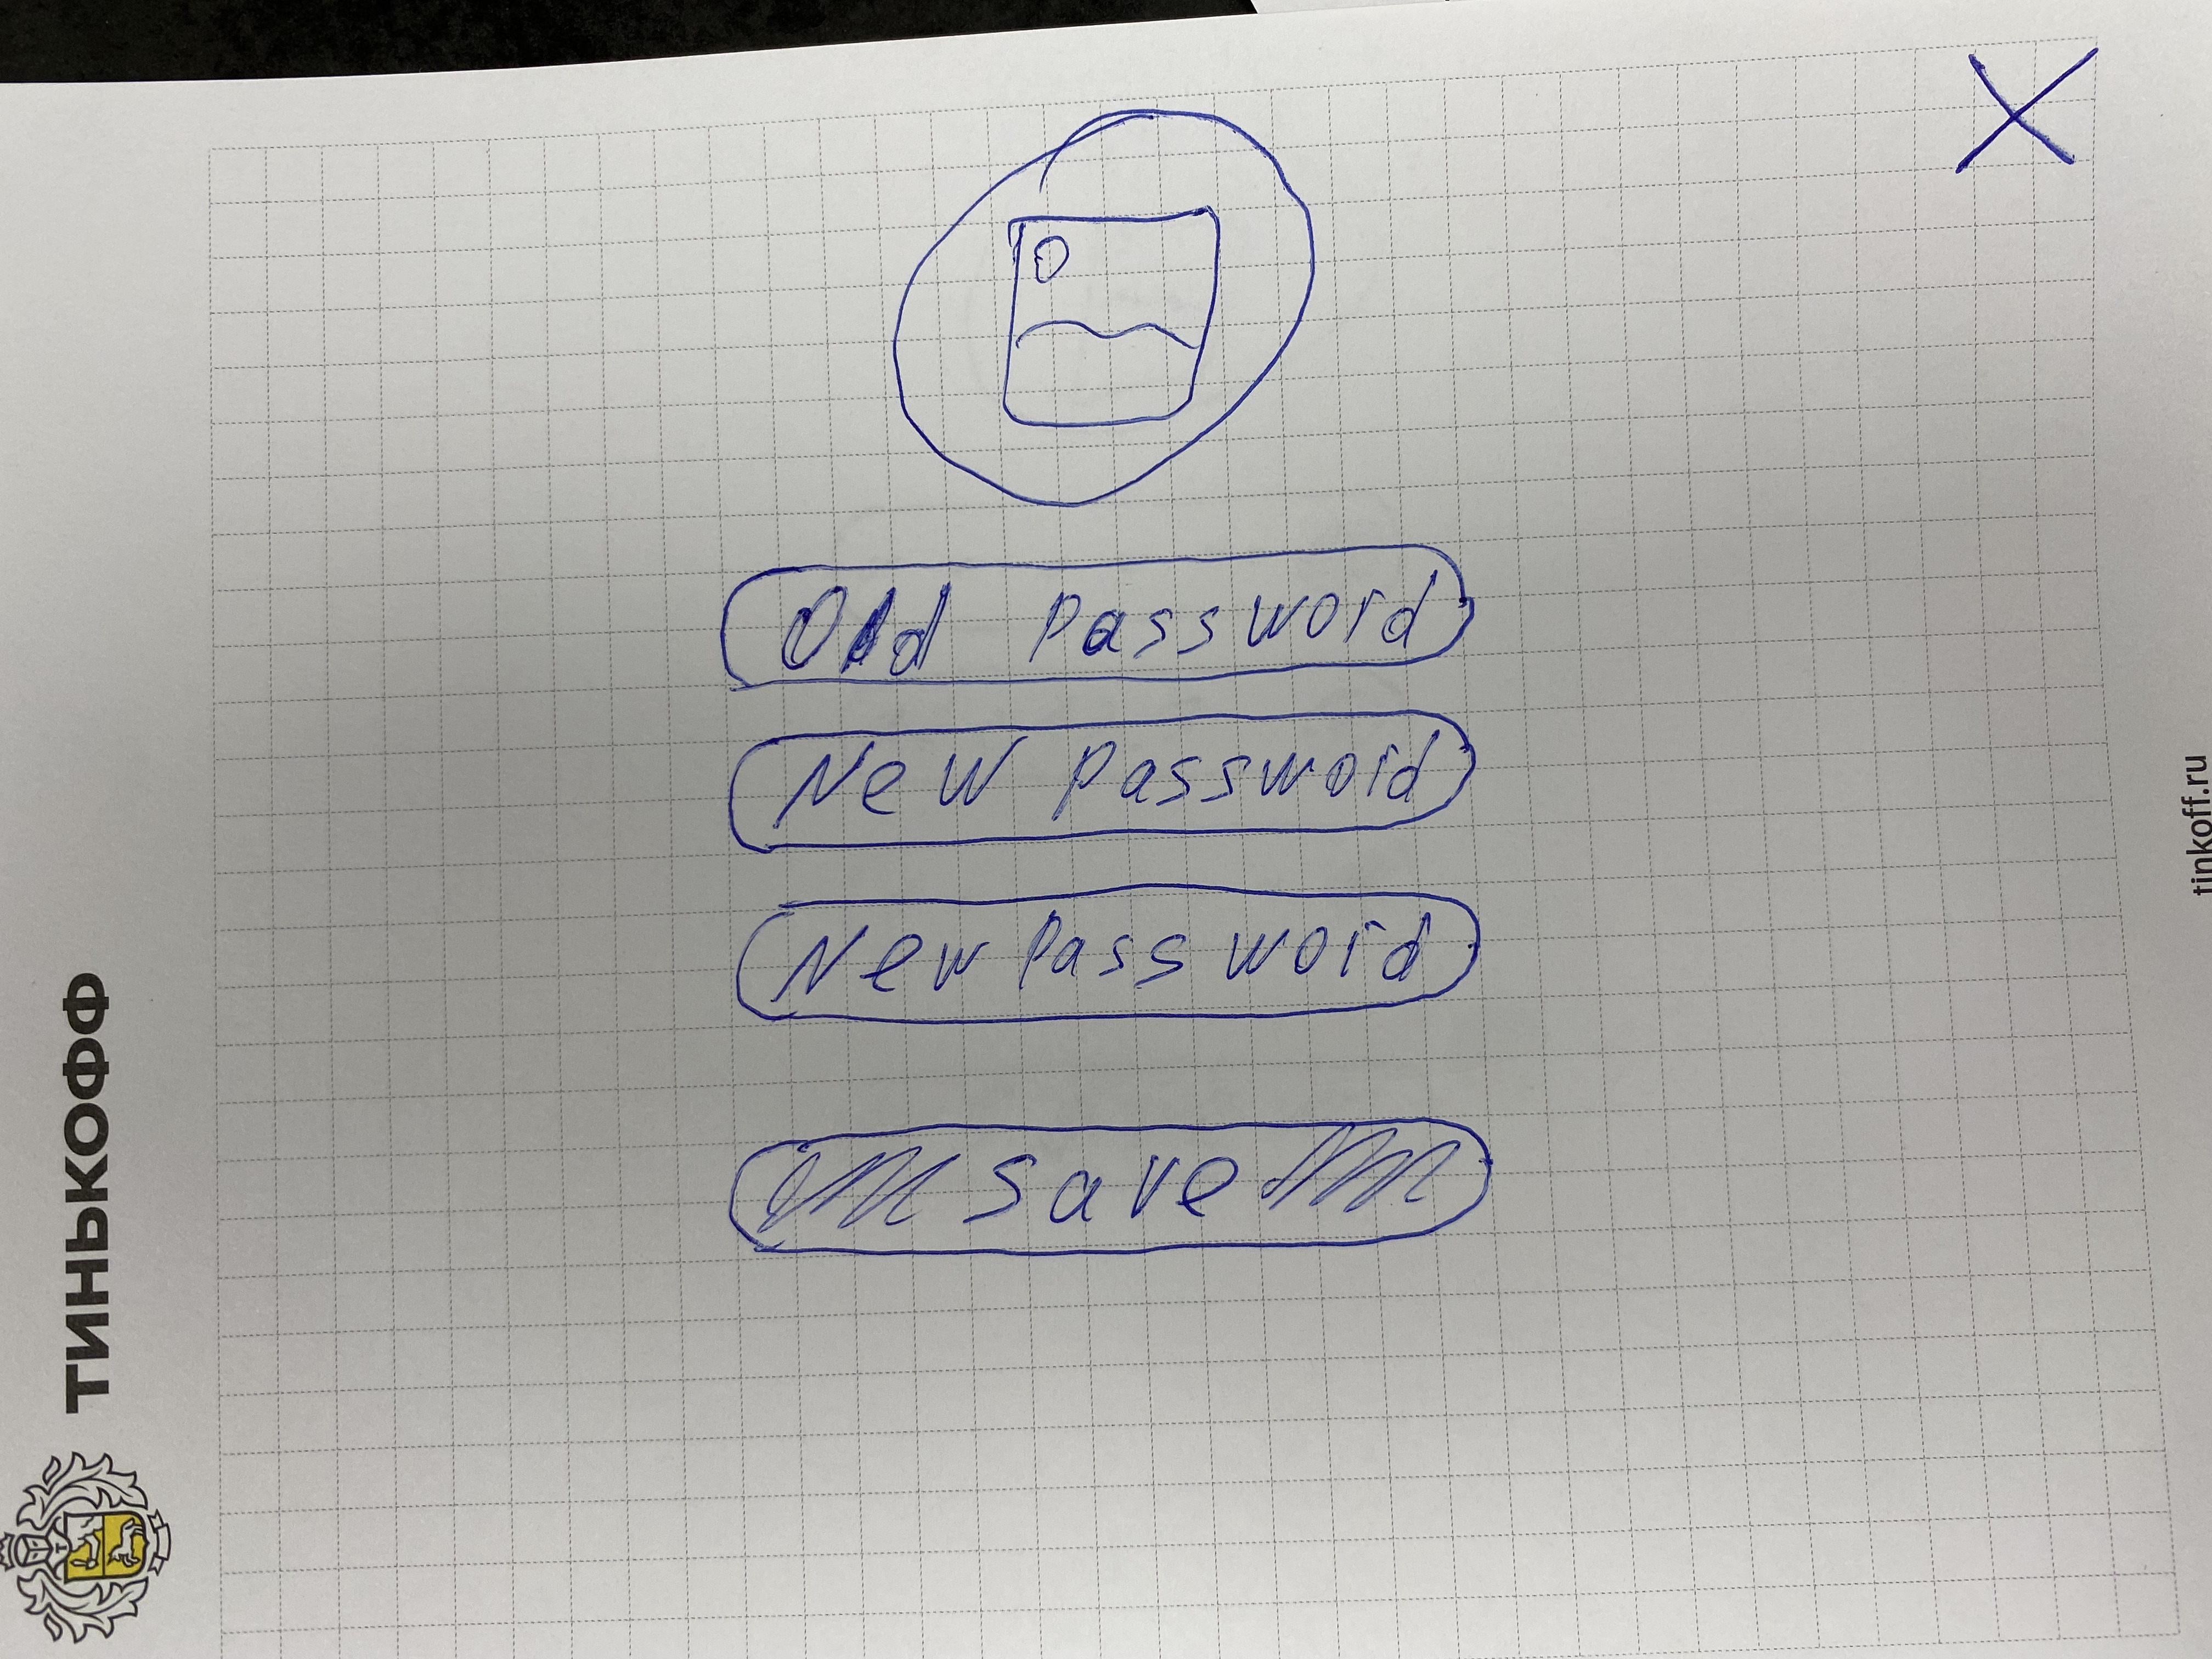 Old password
New password
New password
save
ТИНЬКОФФ
tinkoff.ru